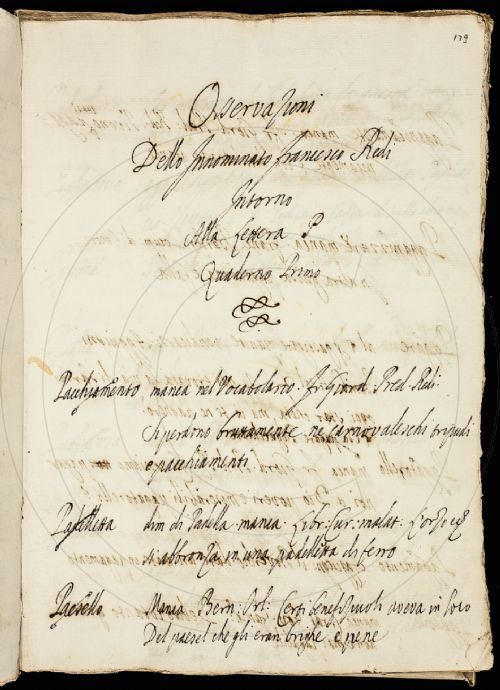 179
Osservazioni
Dello Innominato Francesco Redi
Intorno
Alla Lettera P
Quaderno Primo
Pacchiamento manca nel Vocabolario. Fr: Giord Pred. Redi:
Si perdono bruttamente ne carnovaleschi tripudi
e pacchiamenti
Padelletta dim di Padella manca. Libr: Cur: malat: L'orzo
si abbronza in una padelletta di ferro
Paesello Manca Bern: Orl: Certi benefizivoli aveva in loro
Del paesel che gli eran brighe e pene